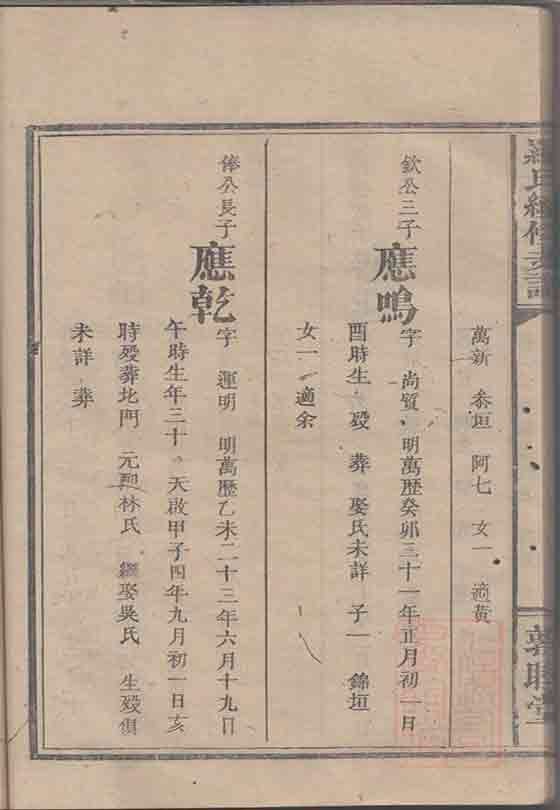 氏續修支譜
萬新 泰垣 阿七 女一 適黃
欽公三子
應鳴
字 尚質 明萬歷癸卯三十一年正月初一日
酉時生 歿 葬 娶氏未詳 子一 錦垣
女一 適余
俸公長子
應乾
字 運明 明萬歷乙未二十三年六月十九日
午時生年三十 天啟甲子四年九月初一日亥
時歿葬北門 元配林氏 繼娶吳氏 生歿俱
未詳 葬